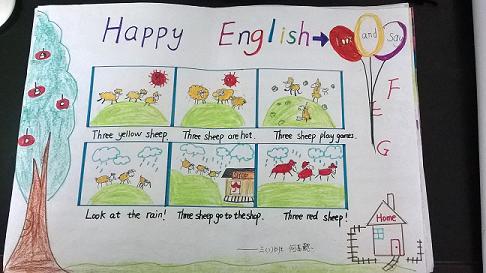 Happy English → Look and Say
F
E
G
Three yellow sheep. Three sheep are hot. Three sheep play games.
Look at the rain! Three sheep go to the shop. Three red sheep!
Home